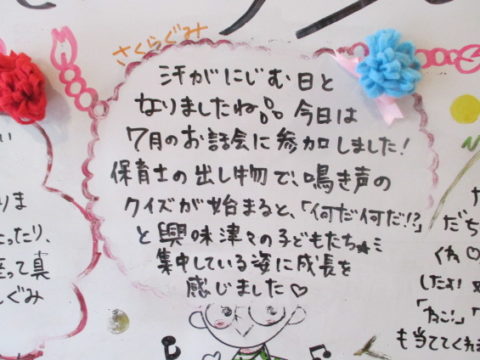 さくらぐみ
汗がにじむ日と
なりましたね。今日は
7月のお話会に参加しました！
保育士の出し物で、鳴き声の
クイズが始まると、「何だ何だ!?」
と興味津々の子どもたち★ミ
集中している姿に成長を
感じました♡
い
りま
ったり、
座って真
しぐみ
だち
くね♡
したよ!
「ねこ!」
も当ててくれ